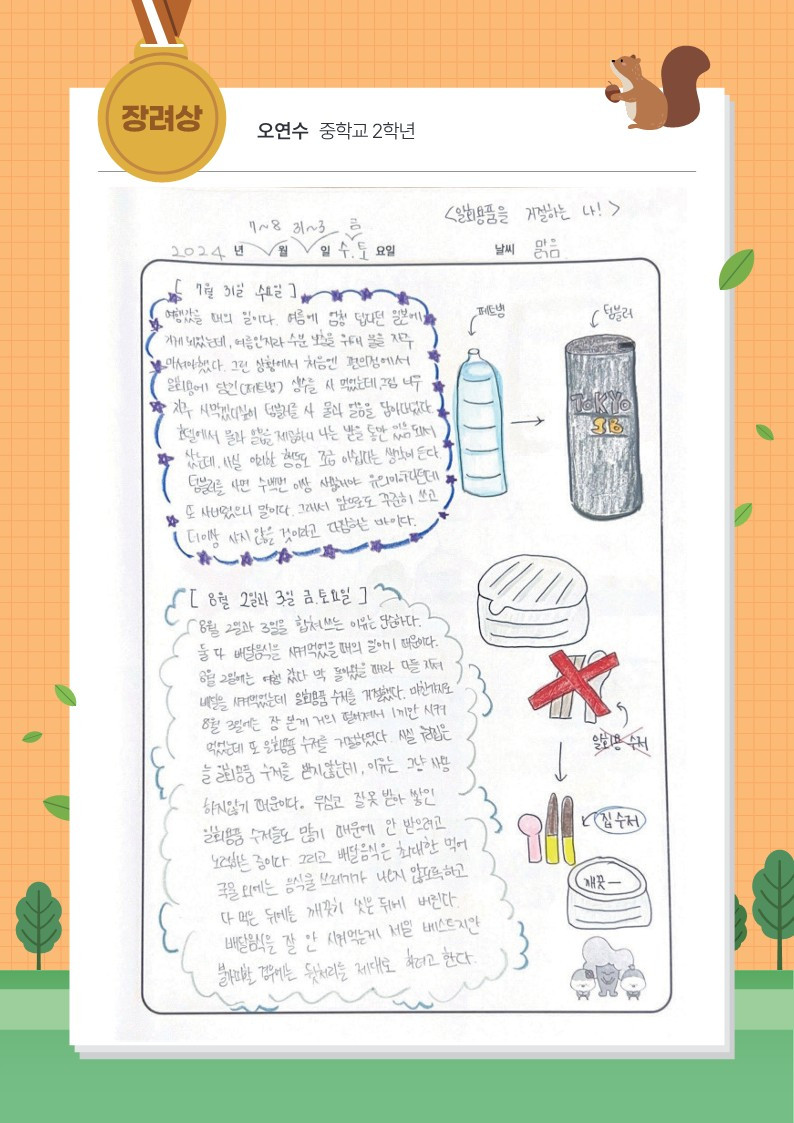 장려상
오연수 중학교 2학년
<일회용품을 거절하는 나!>
7~8 31~3 금
2024 년 월 일 수.토 요일 날씨 맑음
[ 7월 31일 수요일 ]
여행갔을 때의 일이다. 여름에 엄청 덥다던 일본에
가게 되었는데, 여름인지라 수분 보충을 위해 물을 자주
마셔야했다. 그런 상황에서 처음엔 편의점에서
일회용에 담긴(페트병) 생수를 사 먹었는데, 그럼 너무
자주 사먹겠다싶어 텀블러를 사 물과 얼음을 담아다녔다.
호텔에서 물과 얼음을 제공하니 나는 병을 통만 있음 돼서
샀는데, 사실 이러한 행동도 조금 아쉽다는 생각이 든다.
텀블러를 사면 수백번 이상 사용해야 유의미하다던데
또 사버렸으니 말이다. 그래서 앞으로도 꾸준히 쓰고
더이상 사지 않을 것이라고 다짐하는 바이다.
페트병
텀블러
TOKYO
[ 8월 2일과 3일 금.토요일 ]
8월 2일과 3일을 합쳐쓰는 이유는 단순하다.
둘 다 배달음식을 시켜먹었을 때의 일이기 때문이다.
8월 2일에는 여행 갔다 막 돌아왔을 때라 다들 지쳐
배달을 시켜먹었는데 일회용품 수저를 거절했다. 마찬가지로
8월 3일에는 장 본게 거의 떨어져서 1끼만 시켜
먹었는데 또 일회용품 수저를 거절하였다. 사실 우리집은
늘 일회용품 수저를 받지않는데, 이유는 그냥 사용
하지않기 때문이다. 무심코 잘못 받아 쌓인
일회용품 수저들도 많기 때문에 안 받으려고
노력하는 중이다. 그리고 배달음식은 최대한 먹어
국물 외에는 음식물 쓰레기가 나오지 않도록하고
다 먹은 뒤에는 깨끗히 씻은 뒤에 버린다.
배달음식을 잘 안 시켜먹는게 제일 베스트지만
불가피할 경우에는 뒷처리를 제대로 하려고 한다.
일회용 수저
집 수저
깨끗—